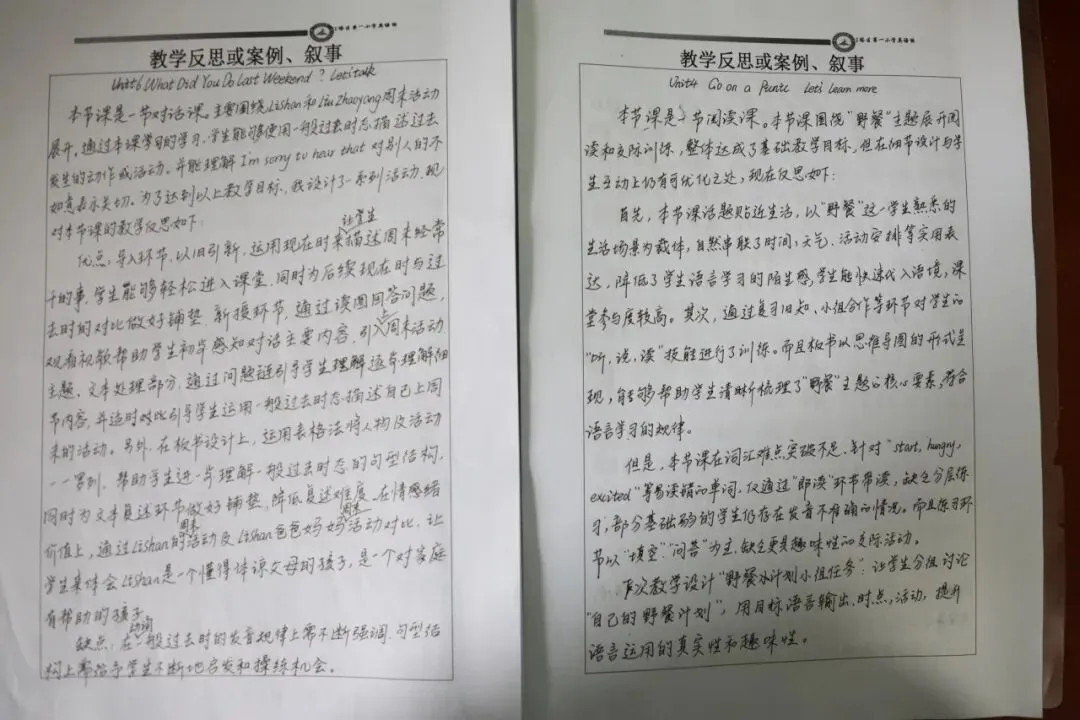 区第一小学英语组
教学反思或案例、叙事
Unit6 What Did You Do Last Weekend? Let's talk
本节课是一节对话课。主要围绕Lishan和Liu Zhaoyang周末活动
展开。通过本课学习的学习，学生能够使用一般过去时态描述过去
发生的动作或活动。并能理解I'm sorry to hear that对别人的不
如意表示关切。为了达到以上教学目标，我设计了一系列活动，现
对本节课的教学反思如下：
优点：导入环节，以旧引新，运用现在时来让学生描述周末经常
干的事，学生能够轻松进入课堂，同时为后续现在时与过
去时的对比做好铺垫。新授环节，通过读图回答问题，
观看视频帮助学生初步感知对话主要内容，引入周末活动
主题。文本处理部分，通过问题链引导学生理解逐步理解细
节内容，并适时对比引导学生运用一般过去时态描述自己上周
末的活动。另外，在板书设计上，运用表格法将人物及活动
一一罗列，帮助学生进一步理解一般过去时态的句型结构，
同时为文本复述环节做好铺垫，降低复述难度。在情感
价值上，通过Lishan的周末活动及Lishan爸爸妈妈周末活动对比，让
学生来体会Lishan是一个懂得体谅父母的孩子，是一个对家庭
有帮助的孩子。
缺点：在一般过去时动词的发音规律上需不断强调，句型结
构上需给予学生不断地启发和操练机会。
区第一小学英语组
教学反思或案例、叙事
Unit4 Go on a Picnic Let's Learn more
本节课是一节阅读课。本节课围绕“野餐”主题展开阅
读和交际训练，整体达成了基础教学目标，但在细节设计与学
生互动上仍有可优化之处，现在反思如下：
首先，本节课话题贴近生活，以“野餐”这一学生熟悉的
生活场景为载体，自然串联了时间、天气、活动安排等实用表
达，降低了学生语言学习的陌生感，学生能快速代入语境，课
堂参与度较高。其次，通过复习旧知、小组合作等环节对学生的
“听、说、读”技能进行了训练。而且板书以思维导图的形式呈
现，能够帮助学生清晰梳理了“野餐”主题的核心要素，符合
语言学习的规律。
但是，本节课在词汇难点突破不足，针对“start, hungry,
excited”等易读错的单词，仅通过“即读”环节带读，缺乏分层练
习，部分基础弱的学生仍存在发音不准确的情况。而且练习环
节以“填空”“问答”为主，缺乏更具趣味性的交际活动。
下次教学设计“野餐计划小组任务”：让学生分组讨论
“自己的野餐计划”，用目标语言输出，时点，活动，提升
语言运用的真实性和趣味性。